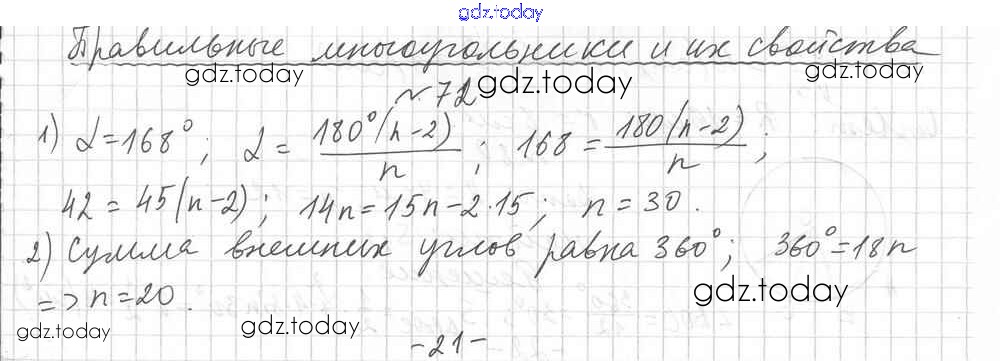 gdz.today
Правильные многоугольники и их свойства
gdz.today gdz.today
№ 72 gdz.today
1) α = 168°; α = 180°(n-2)/n; 168 = 180(n-2)/n;
42 = 45(n-2); 14n = 15n - 2·15; n = 30.
2) Сумма внешних углов равна 360°; 360° = 18n
=> n = 20.
gdz.today
gdz.today gdz.today
-21-